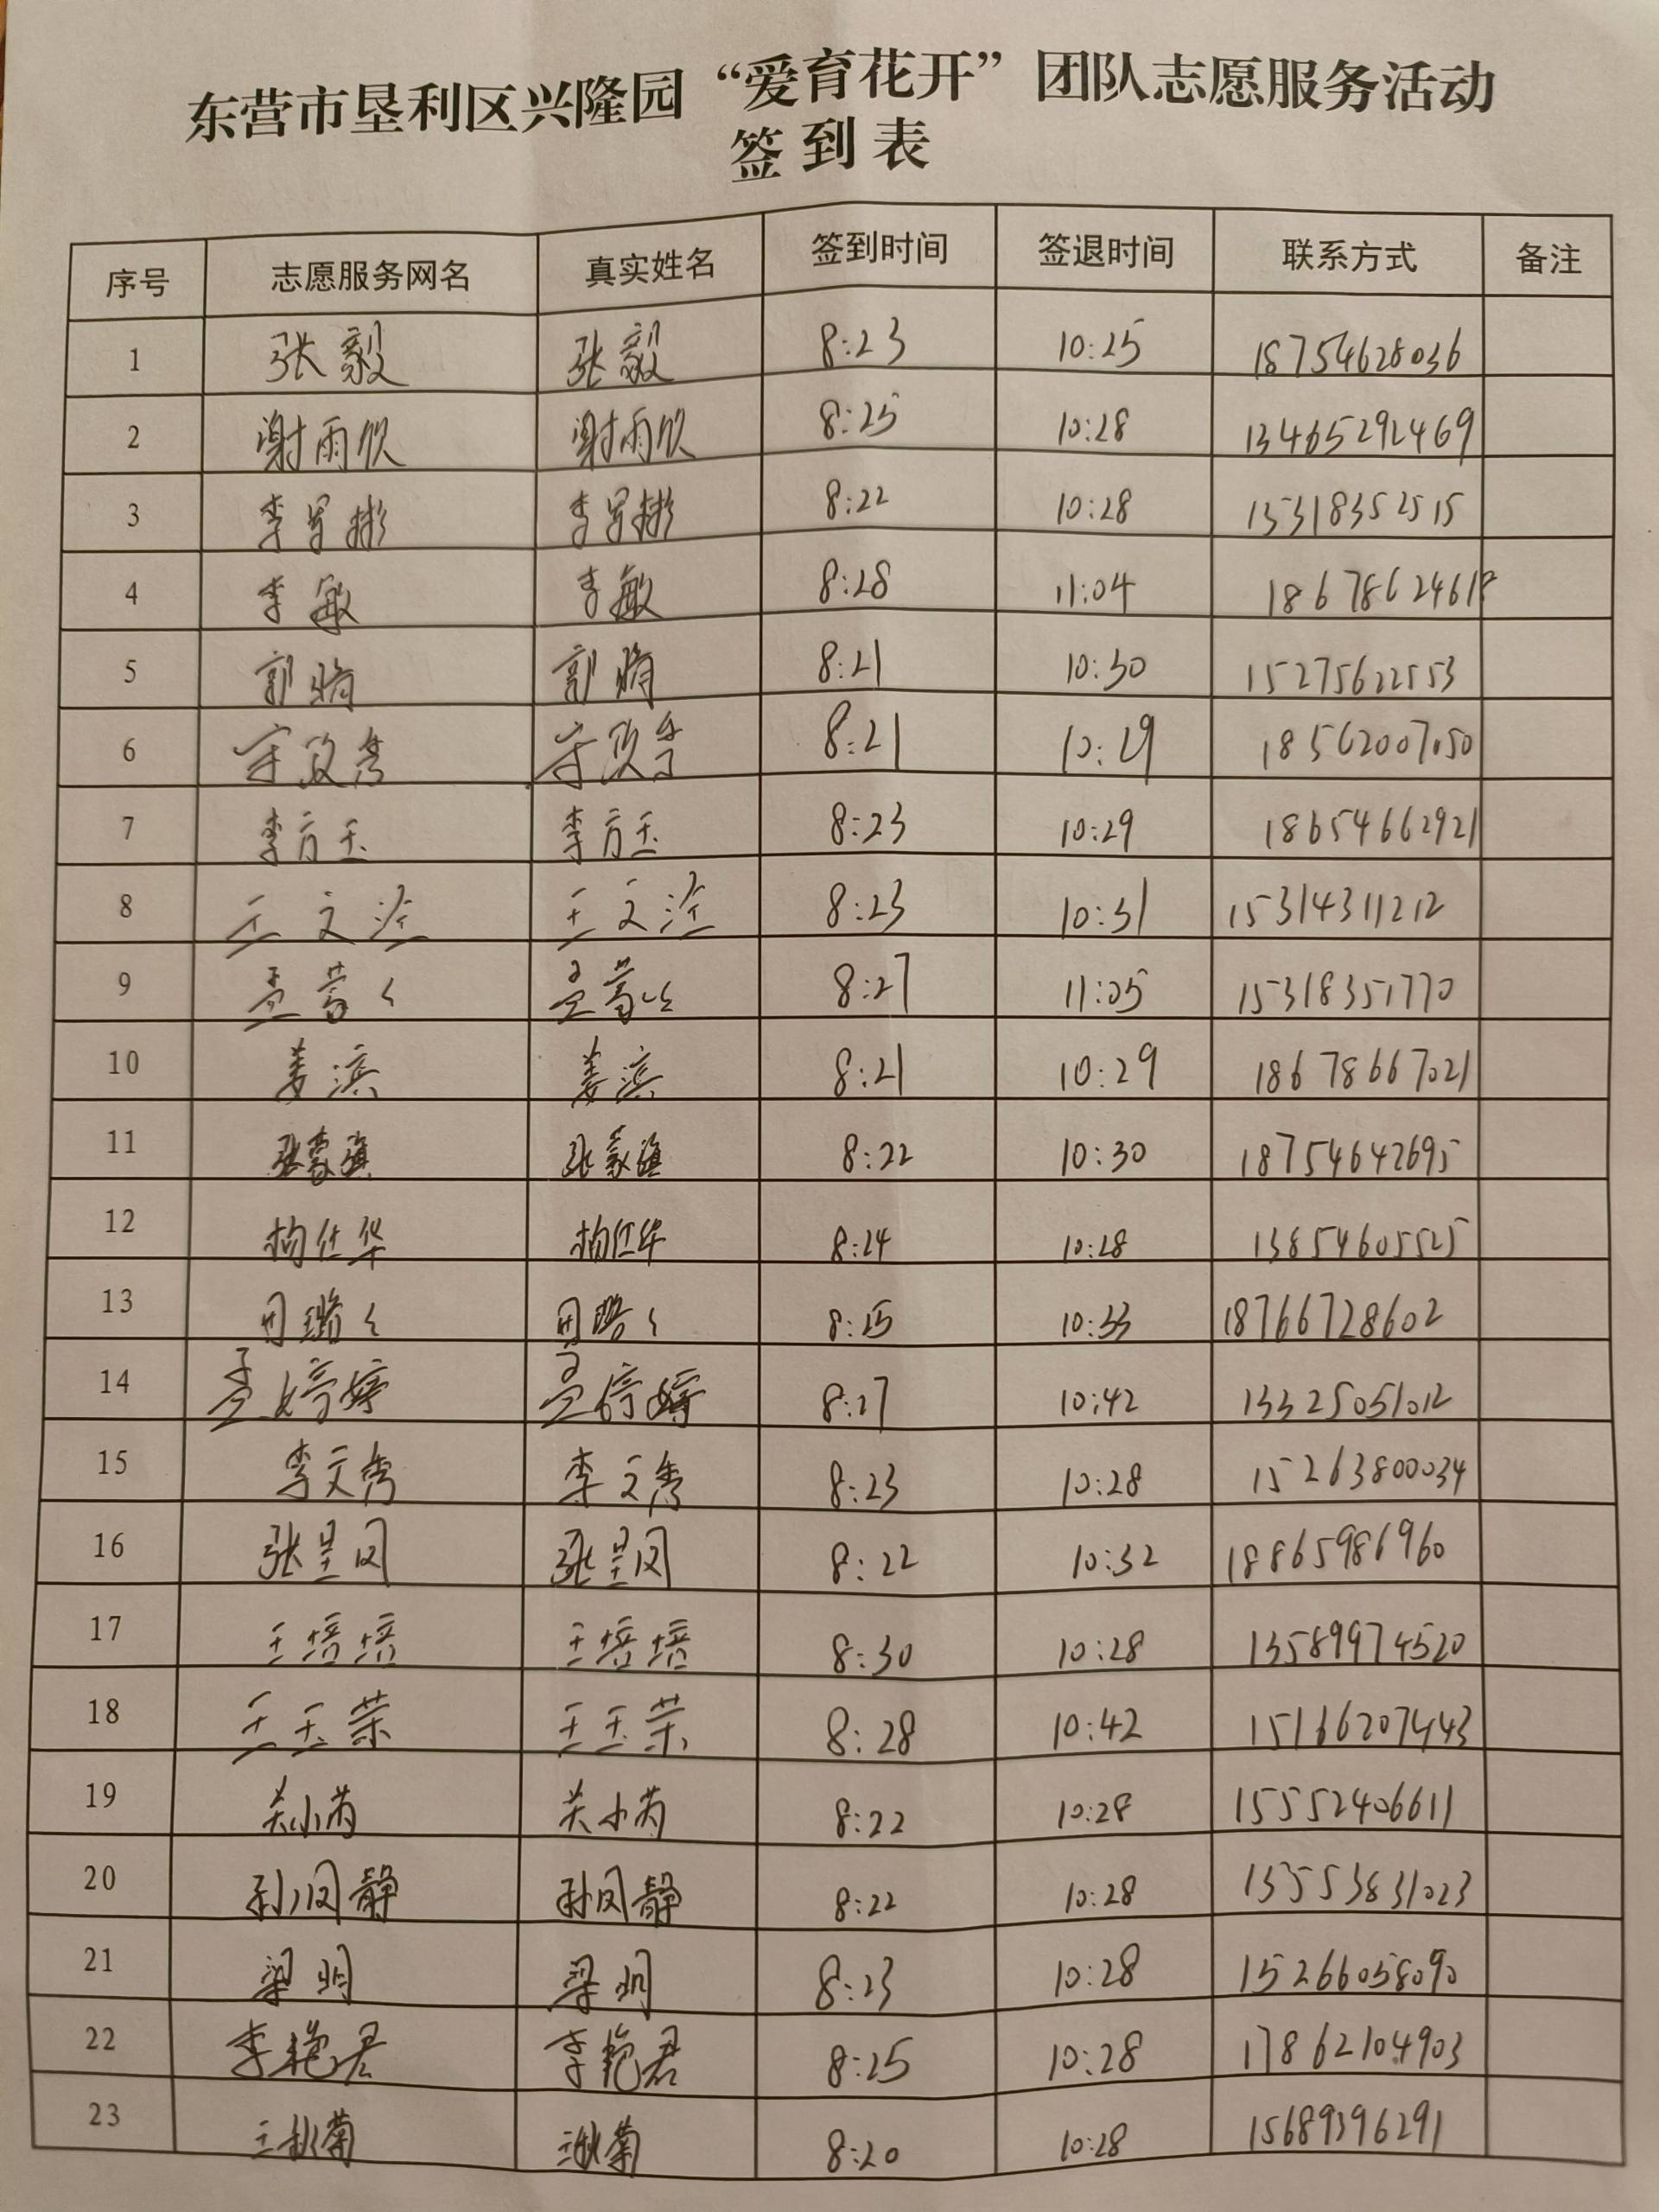 东营市垦利区兴隆园“爱育花开”团队志愿服务活动
签到表
序号 志愿服务网名 真实姓名 签到时间 签退时间 联系方式 备注
1 张毅 张毅 8:23 10:25 18754628036
2 谢雨欣 谢雨欣 8:25 10:28 13465292469
3 李 彬 李 彬 8:22 10:28 15318352515
4 李敏 李敏 8:28 11:04 18678624618
5 郭娟 郭娟 8:21 10:30 15275622553
6 8:21 10:29 18562007050
7 李方玉 李方玉 8:23 10:29 18654662921
8 王文 王文 8:23 10:31 15314311212
9 孟 8:27 11:05 15318351770
10 姜滨 姜滨 8:21 10:29 18678667021
11 张蒙 张蒙 8:22 10:30 18754642695
12 仕华 仕华 8:24 10:28 13854605525
13 8:25 10:33 18766728602
14 孟婷婷 孟婷婷 8:27 10:42 13325051012
15 李文秀 李文秀 8:23 10:28 15263800034
16 张 张 8:22 10:32 18865986960
17 王培培 王培培 8:30 10:28 13589974520
18 王玉荣 王玉荣 8:28 10:42 15166207443
19 关小芮 关小芮 8:22 10:28 15552406611
20 孙凤静 孙凤静 8:22 10:28 13553831023
21 梁明 梁明 8:23 10:28 15266058090
22 李艳君 李艳君 8:25 10:28 17862104903
23 王秋菊 王秋菊 8:20 10:28 15689396291